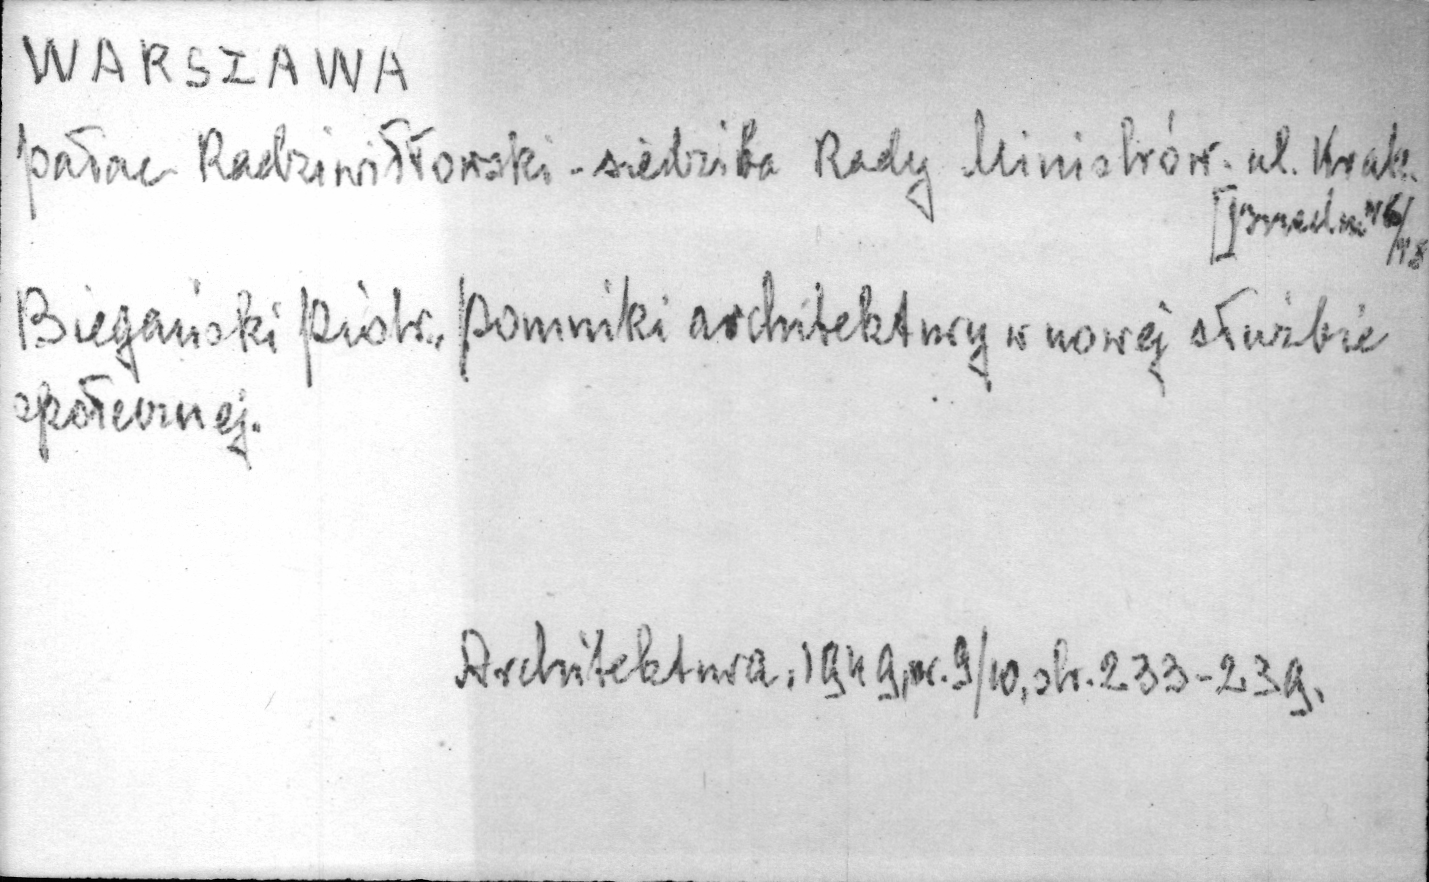 WARSZAWA
pałac Radziwiłłowski - siedziba Rady Ministrów. ul. Krak.
[Przedm. 46/48
Biegański Piotr. Pomniki architektury w nowej służbie
społecznej.
Architektura, 1949, nr. 9/10, str. 233-239.